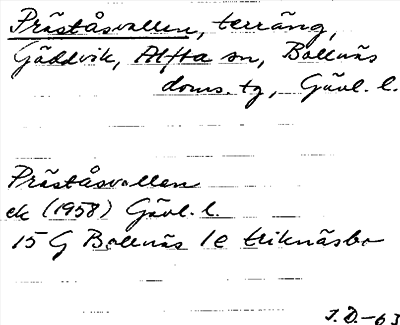 Präståsvallen, terräng,
Gäddvik, Alfta sn, Bollnäs
doms. tg, Gävl. l.
Präståsvallen
ek (1958) Gävl. l.
15 G Bollnäs 1e Eriknäsbo
J.D.-63